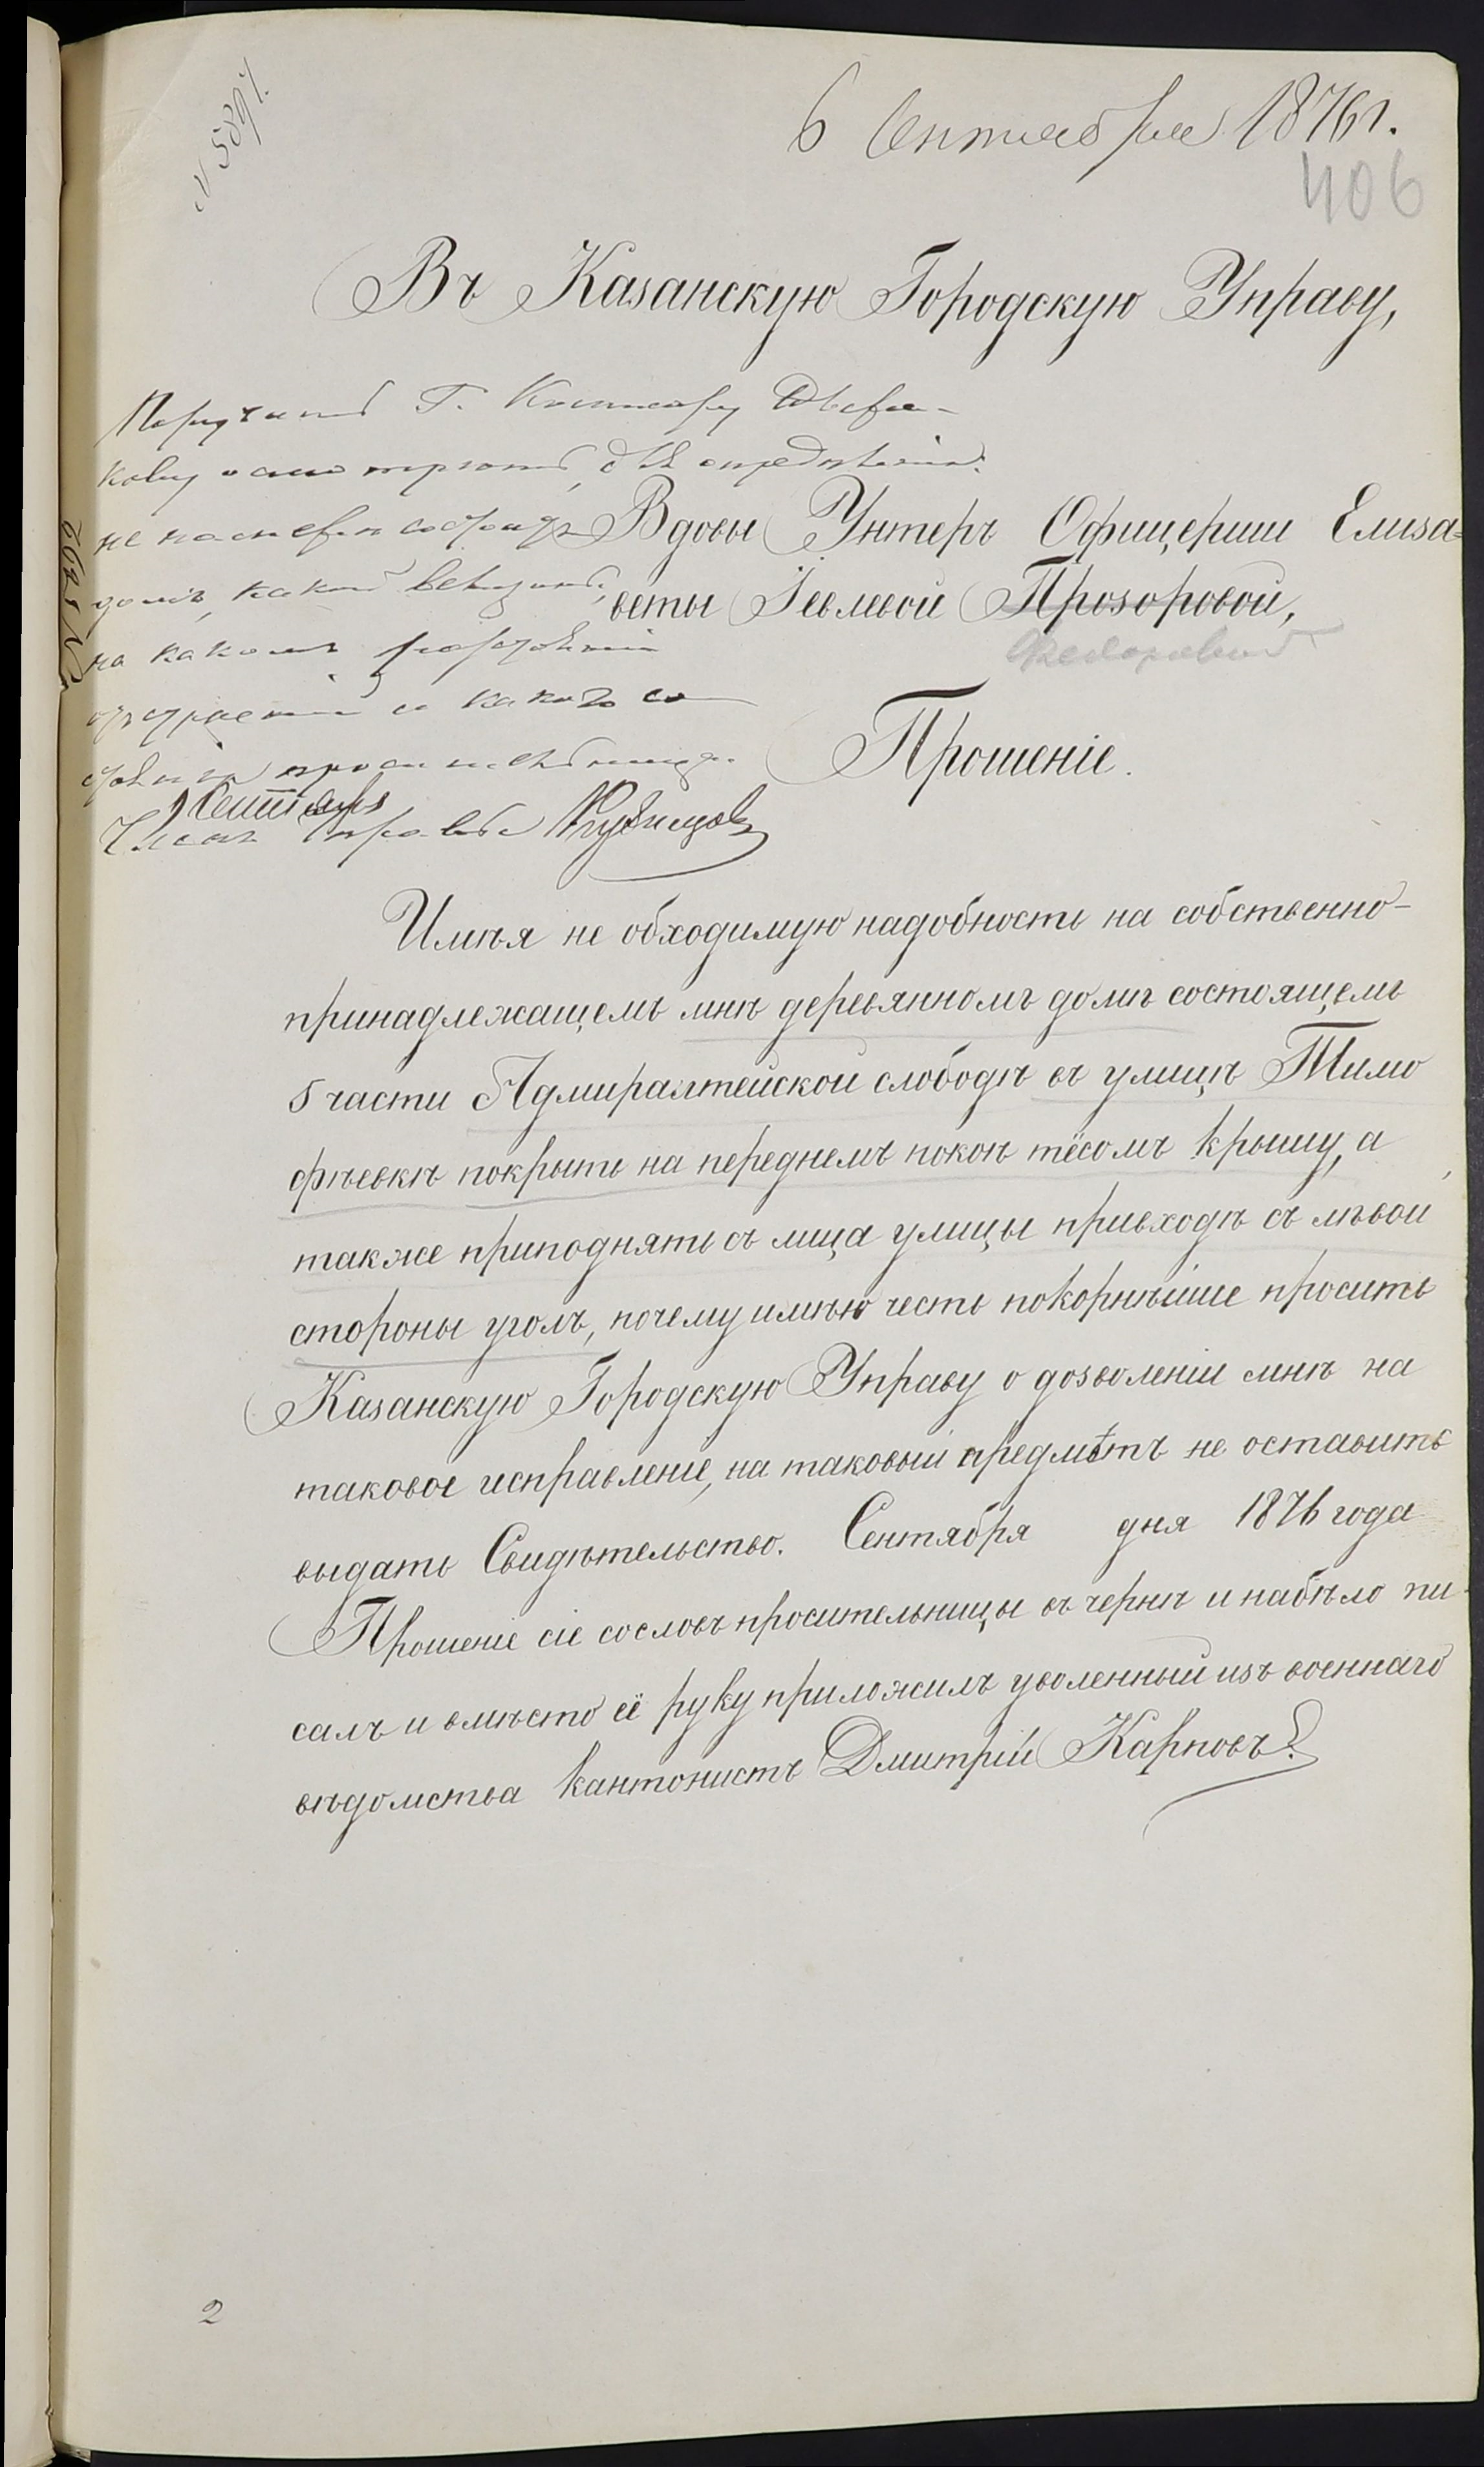 № 5897.
6 Сентября 1876 г.
406
Въ Казанскую Городскую Управу,
Поручить Г.
осмотреть, для определенія:
не
домъ, какой
на какомъ
и какого со
просительница.
Сентября
Членъ Управы
Вдовы Унтеръ Офицерши Елиза=
веты Іевлевой Прозоровой,
Прошеніе.
Имѣя не обходимую надобность на собственно-
принадлежащемъ мнѣ деревянномъ домѣ состоящемъ
5 части Адмиралтейской слободѣ въ улицѣ Тимо
фѣевкѣ покрыть на переднемъ покоѣ тёсомъ крышу, а
также приподнять съ лица улицы привходѣ съ лѣвой
стороны уголъ, почему имѣю честь покорнѣйше просить
Казанскую Городскую Управу о дозволеніи мнѣ на
таковое исправленіе, на таковый предмѣтъ не оставить
выдать Свидѣтельство. Сентября дня 1876 года
Прошеніе сіе сословъ просительницы въ чернѣ и набѣло пи-
салъ и вмѣсто её руку приложилъ уволенный изъ военнаго
вѣдомства кантонистъ Дмитрій Карповъ.
2